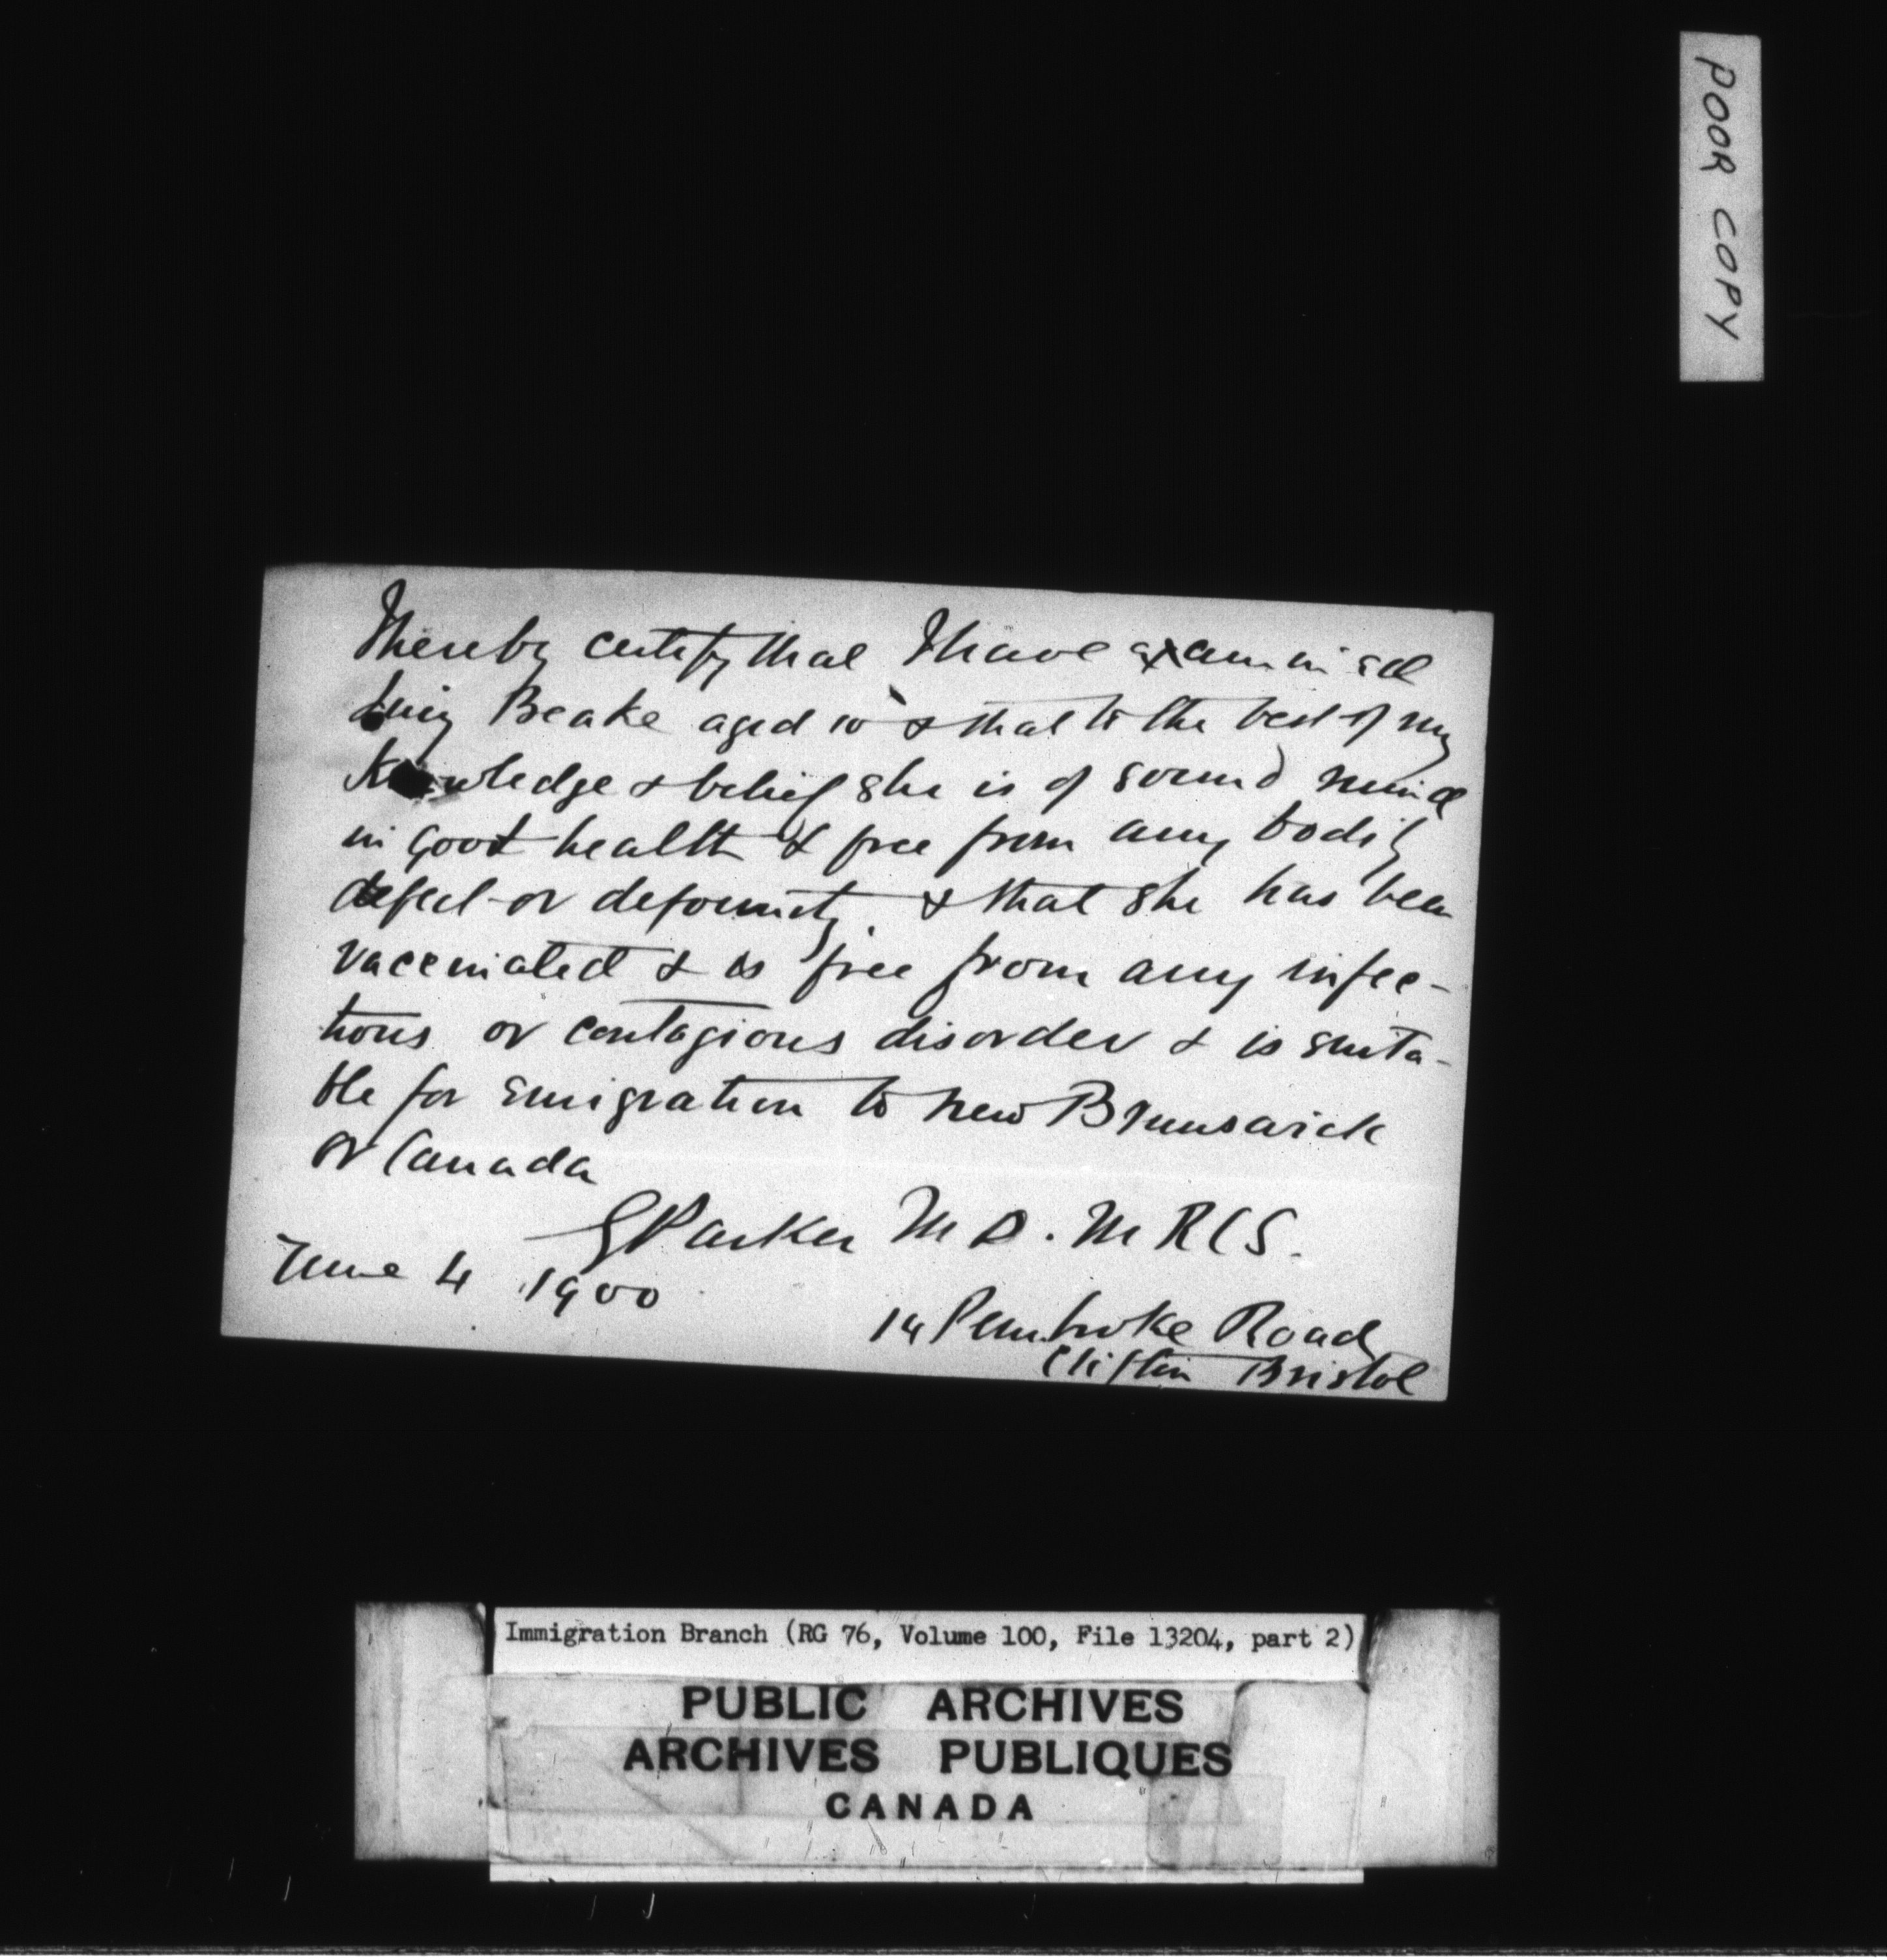 POOR COPY
I hereby certify that I have examined
Lucy Beake aged 10 & that to the best of my
Knowledge & belief she is of sound mind
in good health & free from any bodily
defect or deformity & that she has been
vaccinated & is free from any infec-
tious or contagious disorder & is suita-
ble for emigration to New Brunswick
or Canada
G Parker M D. M R C S.
June 4 1900
14 Pembroke Road
Clifton Bristol
Immigration Branch (RG 76, Volume 100, File 13204, part 2)
PUBLIC ARCHIVES
ARCHIVES PUBLIQUES
CANADA